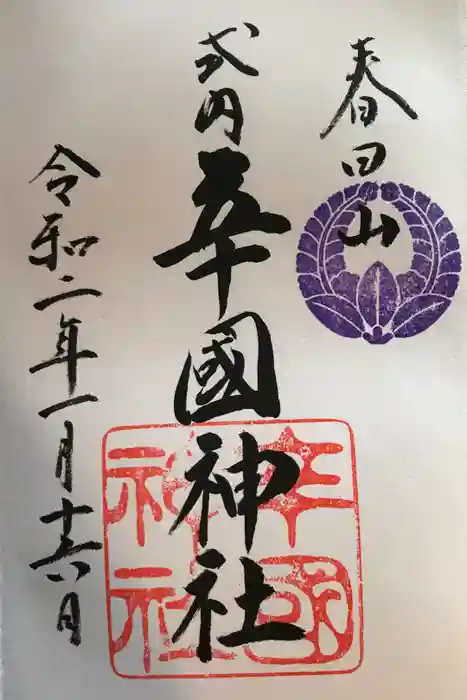 春日山
式内 國神社
令和二年一月十六日
神社